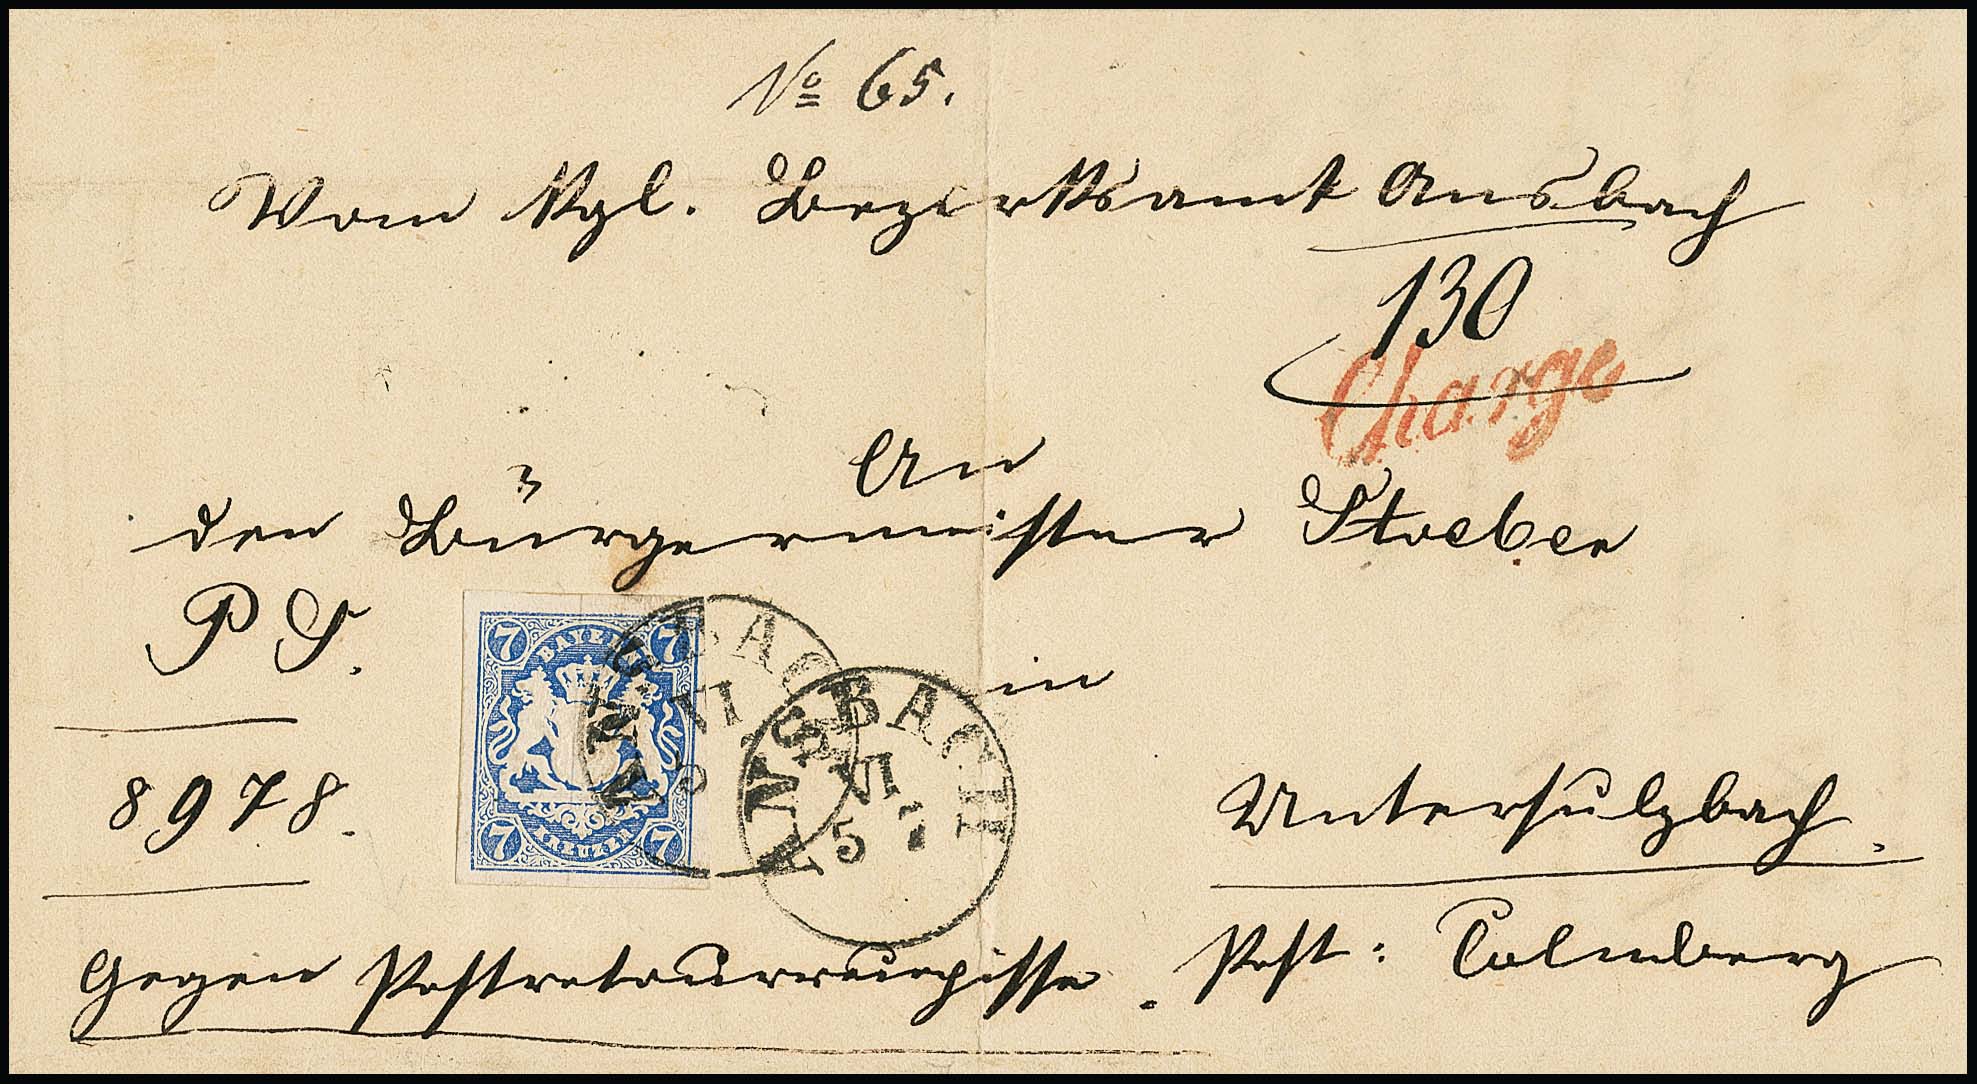 No 65.
Vom Kgl. Bezirksamt Ansbach
130
Charge
An
den Bürgermeister Stoeber
P S.
in
7 BAYERN 7
7 KREUZER 7
ANSBACH
VI
ANSBACH
VI
5 7
8978.
Untersulzbach.
Gegen Postretourrecepisse. Post: Colmberg